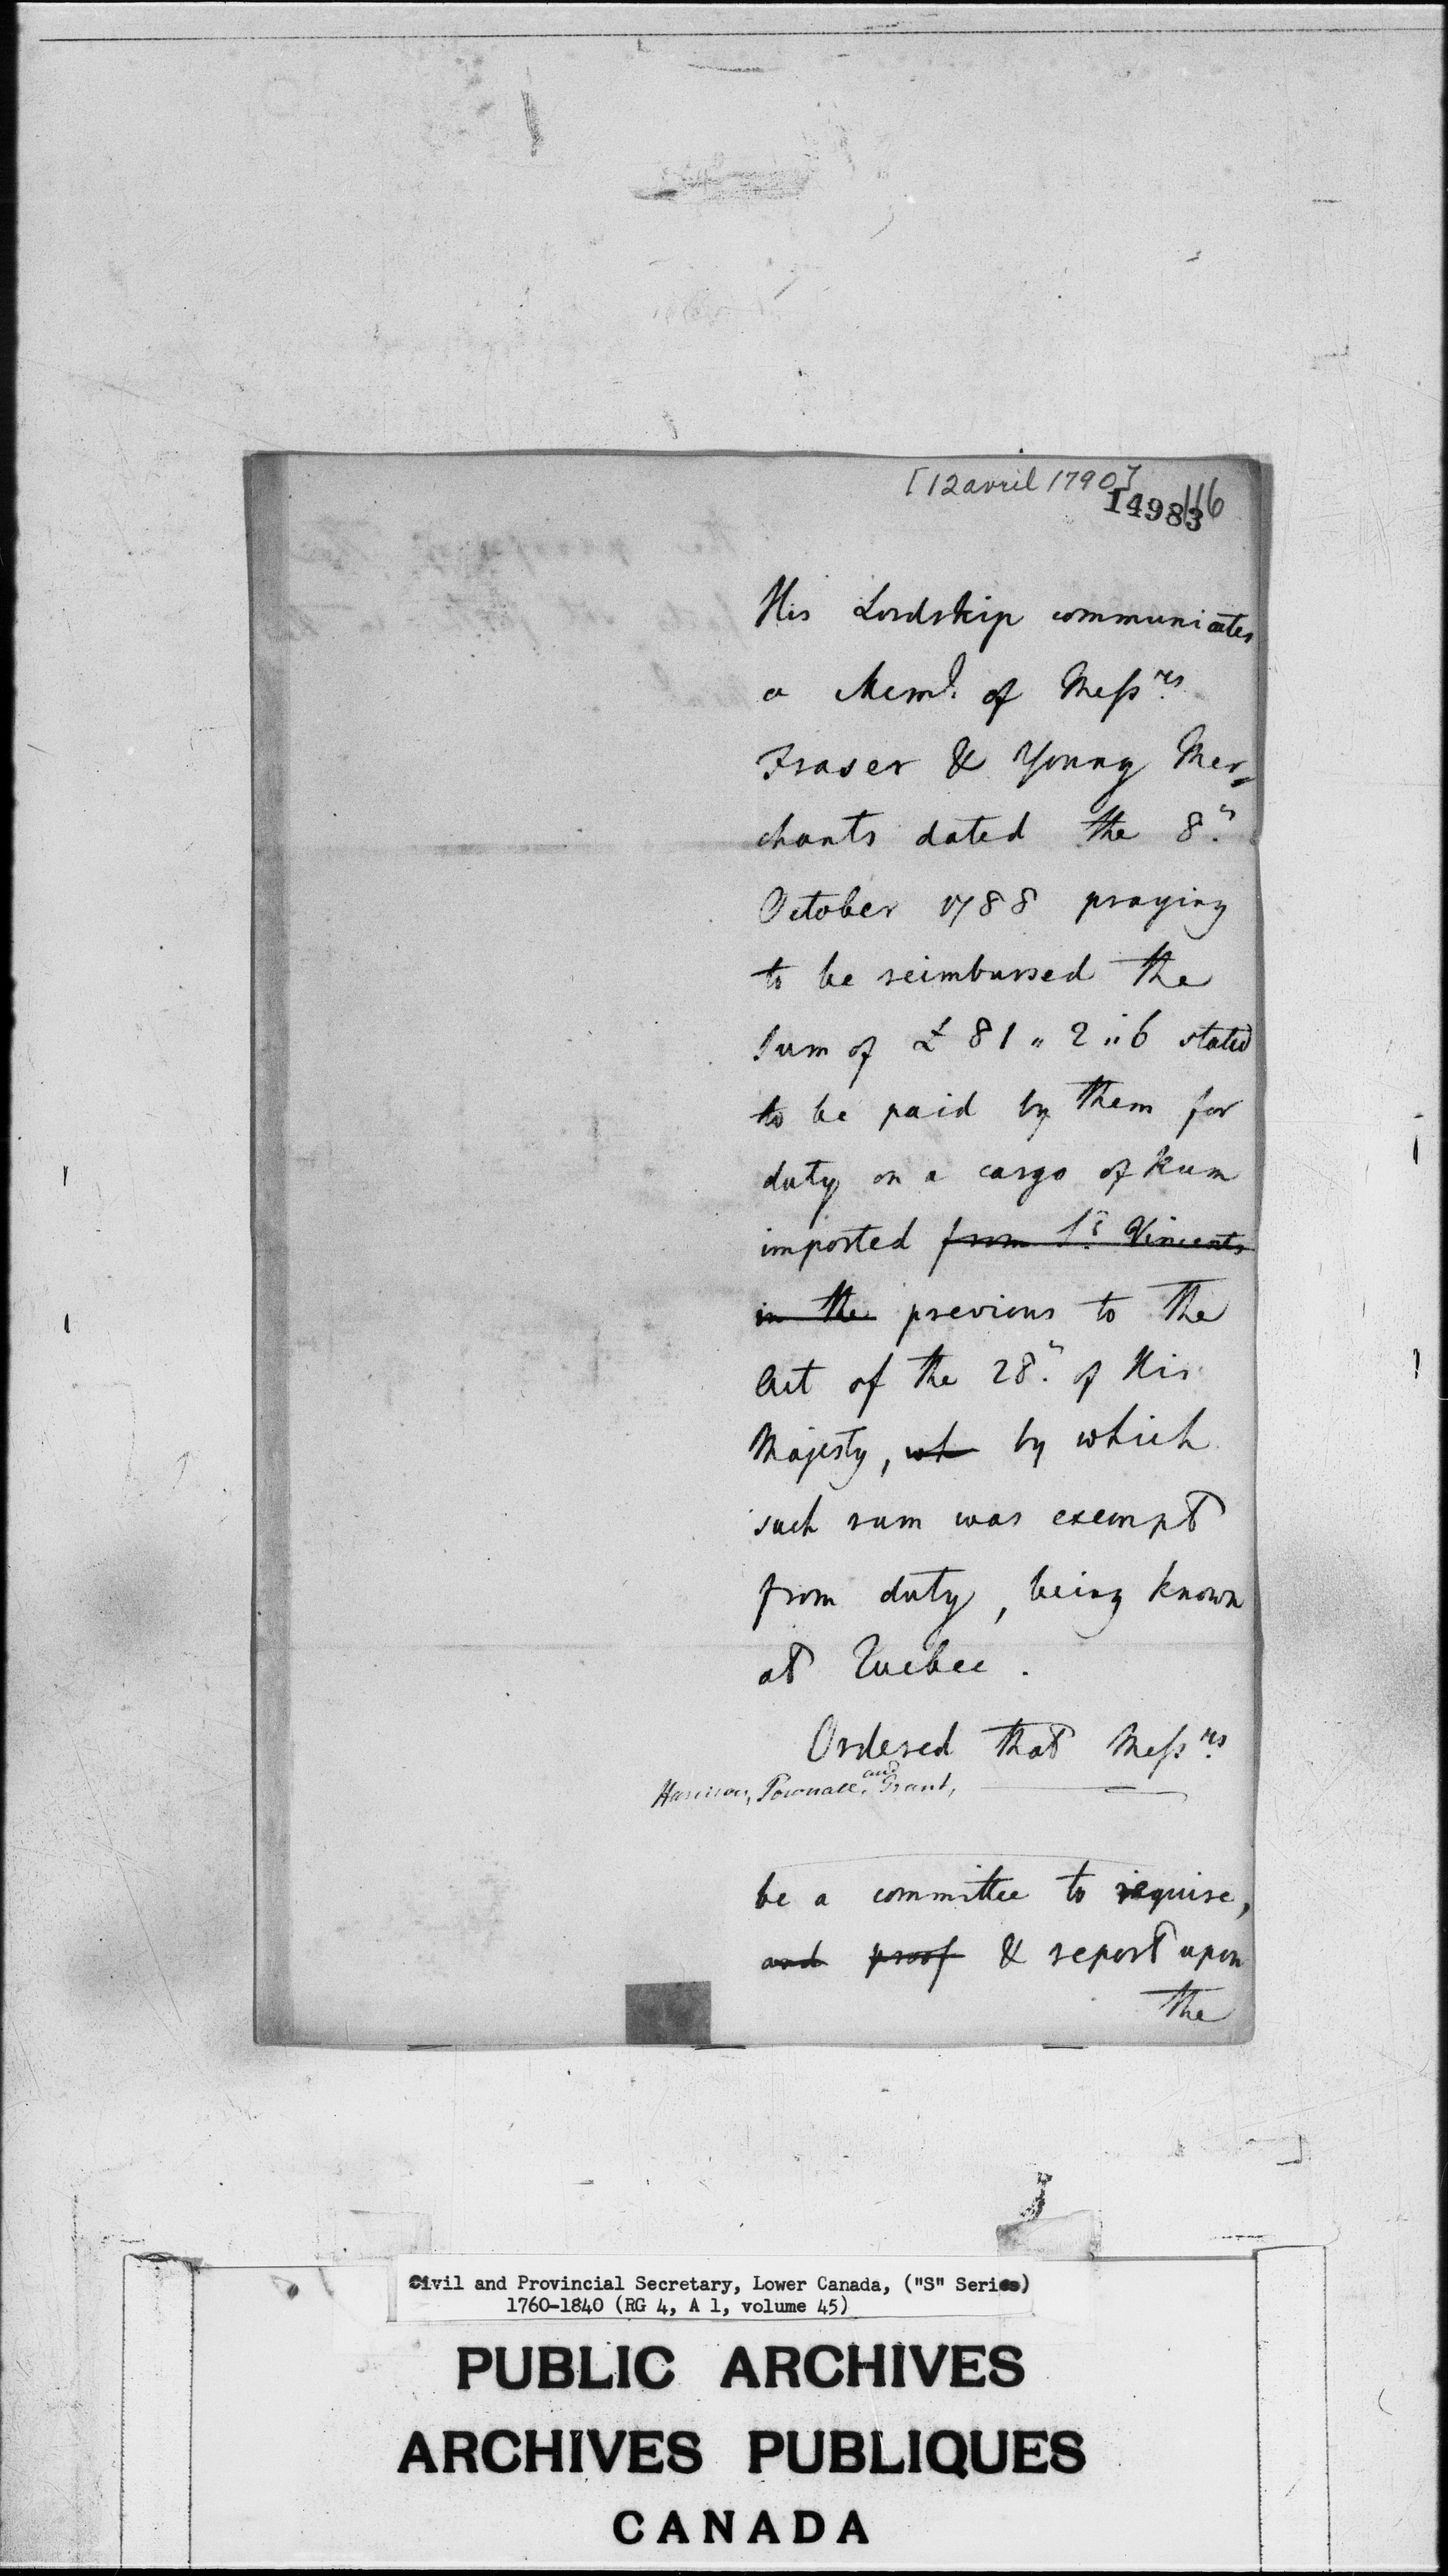 [12 avril 1790]
14983 116
His Lordship communicates
a Meml. of Messrs.
Fraser & Young Mer=
chants dated the 8."
October 1788 praying
to be reimbursed the
Sum of £ 81 " 2 " 6 stated
to be paid by them for
duty on a cargo of Rum
imported from St. Vincents
in the previous to the
Act of the 28." of His
Majesty, wh by which
such rum was exempt
from duty, being known
at Quebec.
Ordered that Messrs.
Harrison, Pownall, and Grant,
be a committee to require,
and proof & report upon
the
Civil and Provincial Secretary, Lower Canada, ("S" Series)
1760-1840 (RG 4, A 1, volume 45)
PUBLIC ARCHIVES
ARCHIVES PUBLIQUES
CANADA